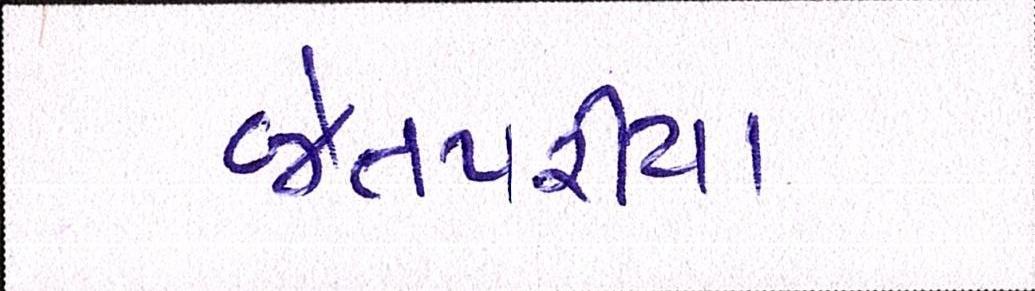 જેતપરીયા